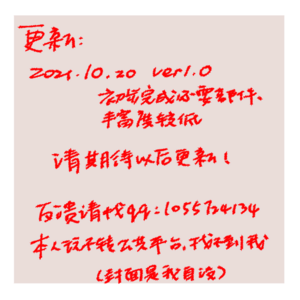 更新:
2021.10.20 ver1.0
初步完成还要部件、
丰富度较低
请期待以后更新!
反馈请找qq:1055724134
本人玩不转公共平台,找不到我
(封面是我自设)